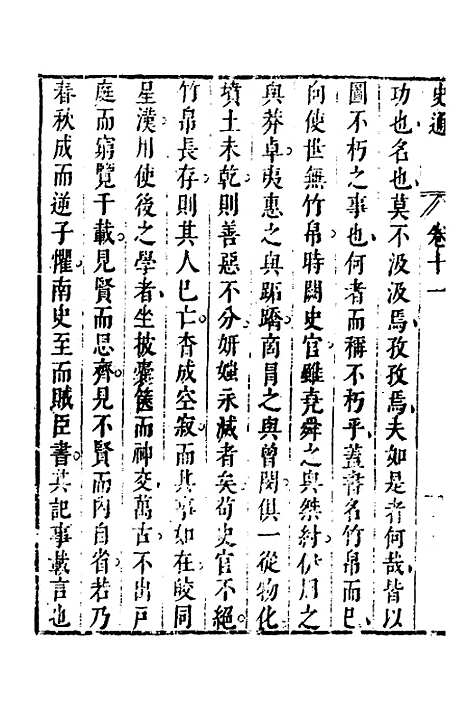 史通 卷十一
功也名也莫不汲汲焉孜孜焉夫如是者何哉皆以
圖不朽之事也何者而稱不朽乎蓋書名竹帛而已
向使世無竹帛時闕史官雖堯舜之與桀紂伊周之
與莽卓夷惠之與跖蹻商冒之與曾閔俱一從物化
墳土未乾則善惡不分妍媸永滅者矣苟史官不絕
竹帛長存則其人已亡杳成空寂而其事如在皎同
星漢用使後之學者坐披囊篋而神交萬古不出戸
庭而窮覽千載見賢而思齊見不賢而內自省若乃
春秋成而逆子懼南史至而賊臣書其記事載言也